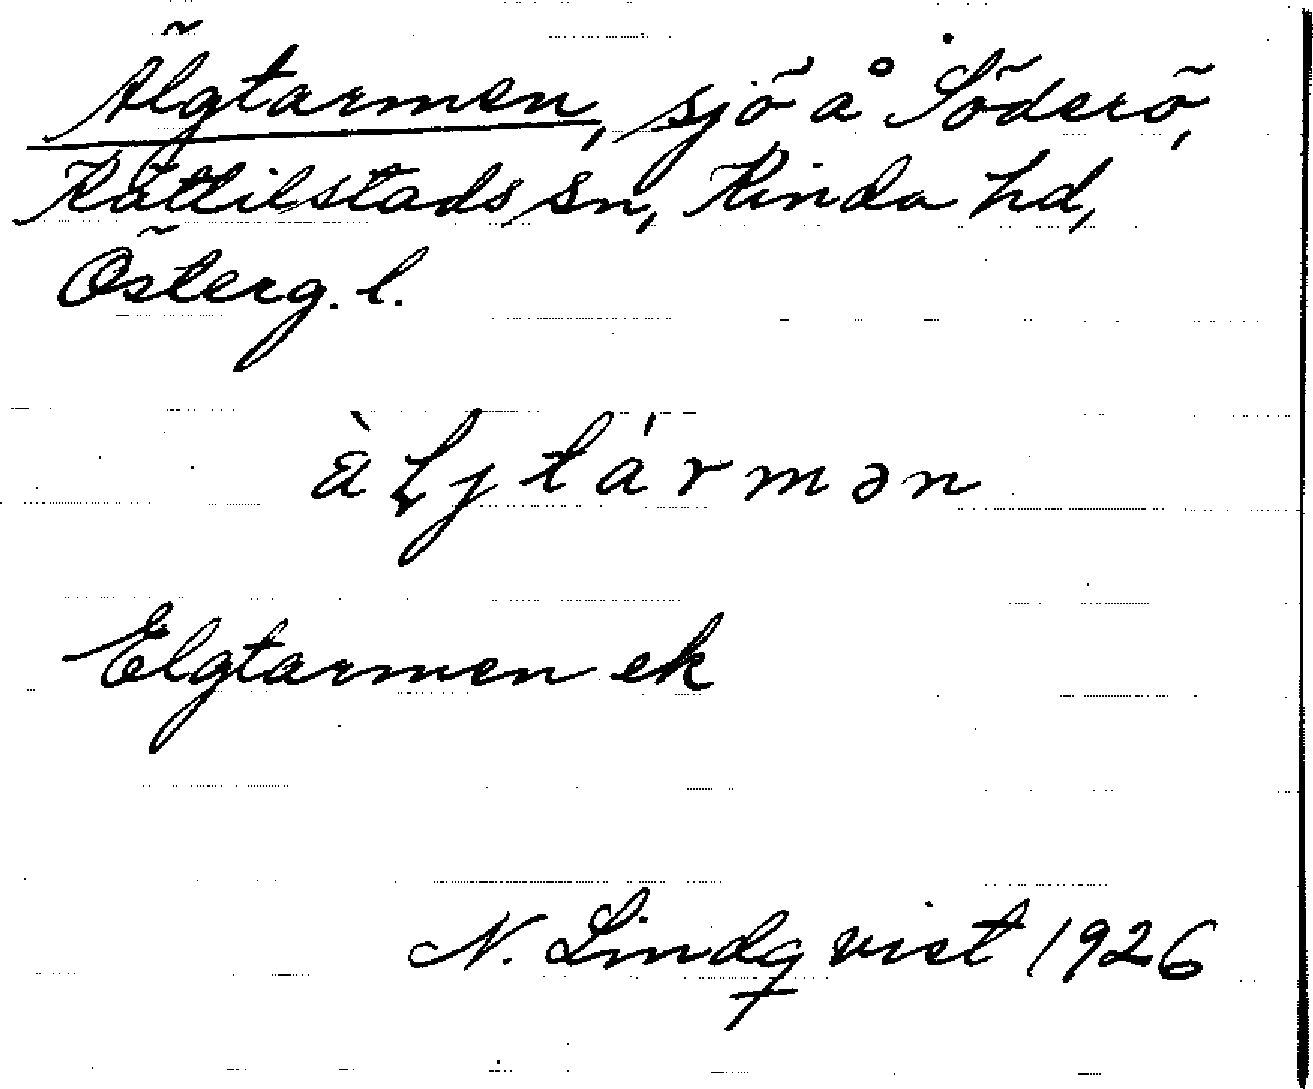 Älgtarmen, sjö å Söderö,
Kättilstads sn, Kinda hd,
Österg. l.
ä̀ljtármən
Elgtarmen ek
N. Lindqvist 1926